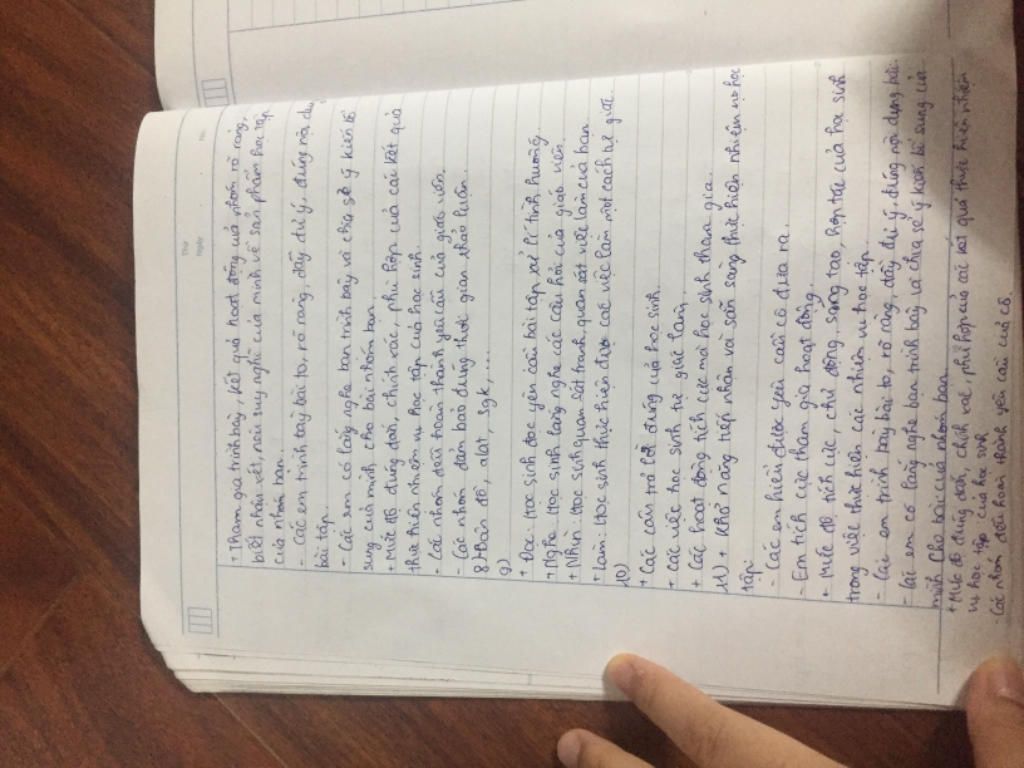 Thứ
Ngày
No.
+ Tham gia trình bày, kết quả hoạt động của nhóm rõ ràng,
biết nhận xét, nêu suy nghĩ của mình về sản phẩm học tập
của nhóm bạn.
- Các em trình bày bài to, rõ ràng, đầy đủ ý, đúng nội du
bài tập.
- Các em có lắng nghe bạn trình bày và chia sẻ ý kiến bổ
sung của mình cho bài nhóm bạn.
+ Mức độ đúng đắn, chính xác, phù hợp của các kết quả
thực hiện nhiệm vụ học tập của học sinh.
- Các nhóm đều hoàn thành yêu cầu của giáo viên.
- Các nhóm đảm bảo đúng thời gian thảo luận.
8) Bản đồ, alat, sgk,...
9)
+ Đọc: Học sinh đọc yêu cầu bài tập, xử lí tình huống.
+ Nghe: Học sinh lắng nghe các câu hỏi của giáo viên.
+ Nhìn: Học sinh quan sát tranh, quan sát việc làm của bạn.
+ Làm: Học sinh thực hiện được các việc làm một cách tự giác.
10)
+ Các câu trả lời đúng của học sinh.
+ Các việc học sinh tự giác làm,
+ Các hoạt động tích cực mà học sinh tham gia.
11) + Khả năng tiếp nhận và sẵn sàng thực hiện nhiệm vụ học
tập:
- Các em hiểu được yêu cầu cô đưa ra.
- Em tích cực tham gia hoạt động.
+ Mức độ tích cực, chủ động, sáng tạo, hợp tác của học sinh
trong việc thực hiện các nhiệm vụ học tập.
- Các em trình bày bài to, rõ ràng, đầy đủ ý, đúng nội dung bài.
- Các em có lắng nghe bạn trình bày và chia sẻ ý kiến bổ sung của
mình cho bài của nhóm bạn.
+ Mức độ đúng đắn, chính xác, phù hợp của các kết quả thực hiện nhiệm
vụ học tập của học sinh
- Các nhóm đều hoàn thành yêu cầu của cô.